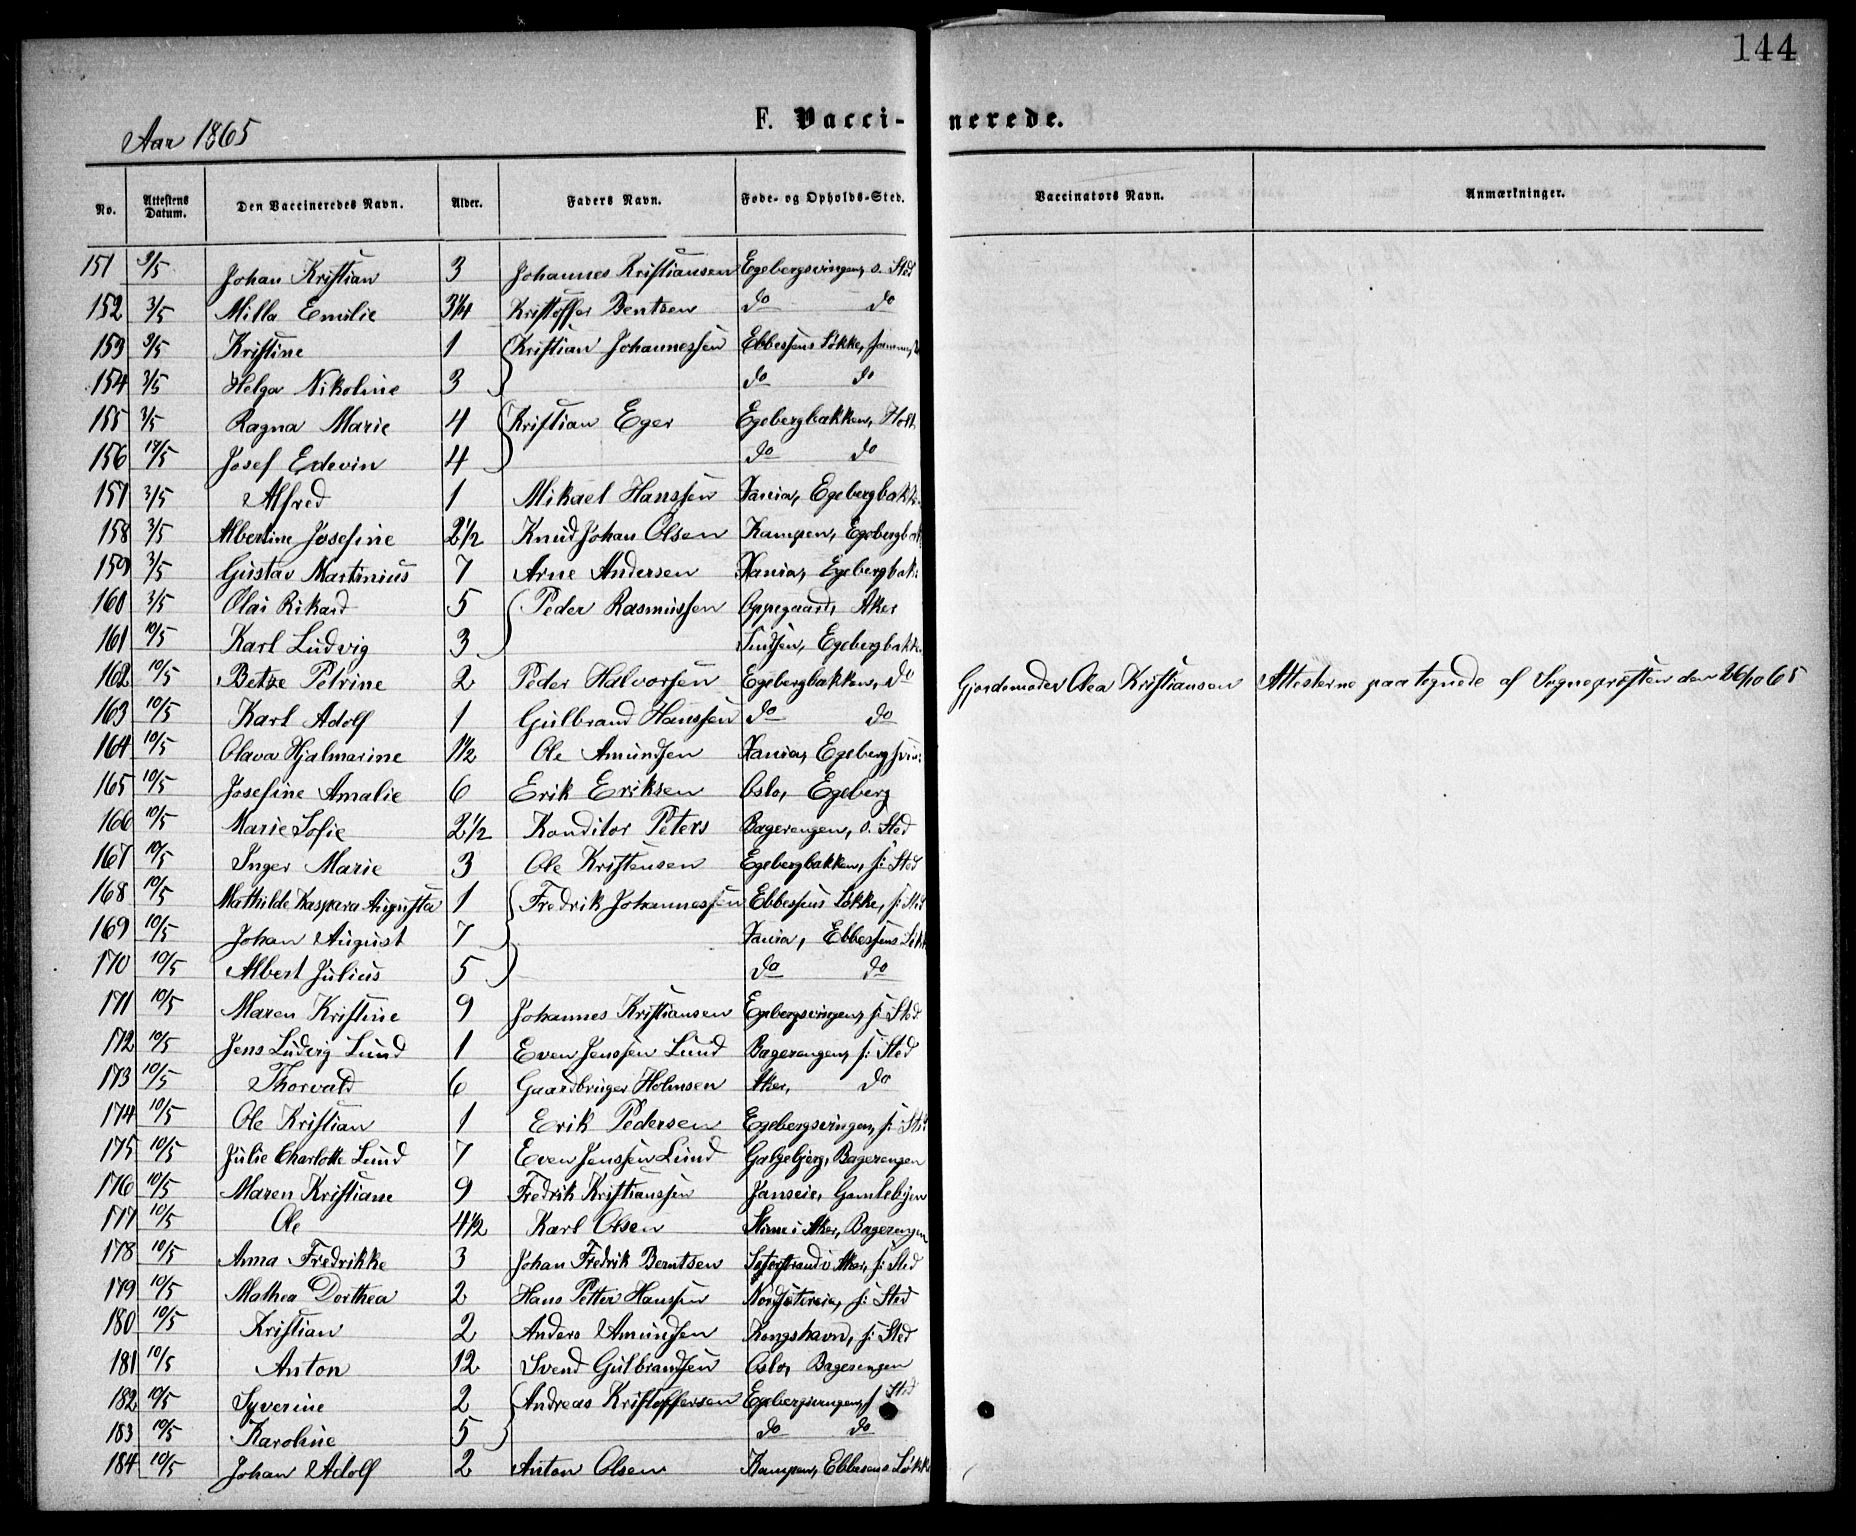 144
Aar 1865
F. Vaccinerede.
No. Attestens Datum. Den Vaccineredes Navn. Alder. Faders Navn. Føde- og Opholds-Sted. Vaccinators Navn. Anmærkninger.
151 3/5 Johan Kristian 3 Johannes Kristiansen Egebergsvingen, s. Sted
152 3/5 Milla Emilie 3 1/4 Kristoffer Bentsen do do
153 3/5 Kristine 1 Kristian Johannessen Ebbessens Løkke,
154 3/5 Helga Nikoline 3 do do
155 3/5 Ragna Marie 4 Kristian Eger Egebergbakken,
156 18/5 Josef Edevin 4 do do
157 3/5 Alfred 1 Mikael Hanssen Xania, Egebergbakk
158 3/5 Albertine Josefine 2 1/2 Knud Johan Olsen Kampen, Egebergbak
159 3/5 Gustav Martinius 7 Arne Andersen Xania, Egebergbak
160 3/5 Olai Rikard 5 Peder Rasmussen Oppegaard, Aker
161 10/5 Karl Ludvig 3 Egebergbakk
162 10/5 Betze Petrine 2 Peder Halvorsen Egebergbakken, do Gjordemoder Olea Kristiansen Attesterne paategnede af Sognepræsten den 26/10 65
163 10/5 Karl Adolf 1 Gulbrand Hanssen do do
164 10/5 Olava Hjalmarine 1 1/2 Ole Amundsen Xania, Egebergsvin:
165 10/5 Josefine Amalie 6 Erik Eriksen Oslo, Egeberg
166 10/5 Marie Sofie 2 1/2 Konditor Peters Bagerengen, s. Sted
167 10/5 Inger Marie 3 Ole Kristensen Egebergbakken, s: Sted
168 10/5 Mathilde Kaspara Augusta 1 Fredrik Johannessen Ebbessens Løkke, s: Sted
169 10/5 Johan August 7 Xania, Ebbessens Løkk
170 10/5 Albert Julius 5 do do
171 10/5 Maren Kristine 9 Johannes Kristiansen Egebergsvingen, s: Sted
172 10/5 Jens Ludvig Lund 1 Even Jenssen Lund Bagerengen, s: Sted
173 10/5 Thorvald 6 Gaardbruger Holmsen Aker, do
174 10/5 Ole Kristian 1 Erik Pedersen Egebergsvingen, s: Sted
175 10/5 Julie Charlotte Lund 7 Even Jenssen Lund Galgebjerg, Bagerengen
176 10/5 Maren Kristiane 9 Fredrik Kristianssen Gamlebyen
177 10/5 Ole 4 1/2 Karl Olsen i Aker, Bagerengen
178 10/5 Anna Fredrikke 3 Johan Fredrik Berntsen i Aker, s: Sted
179 10/5 Mathea Dorthea 2 Hans Petter Hanssen s: Sted
180 10/5 Kristian 2 Anders Amundsen Kongshavn, s: Sted
181 10/5 Anton 12 Svend Gulbrandsen Oslo, Bagerengen
182 10/5 Syverine 2 Andreas Kristoffersen Egebergsvingen, s Sted
183 10/5 Karoline 5 do do
184 10/5 Johan Adolf 2 Anton Olsen Kampen, Ebbesens Løkke